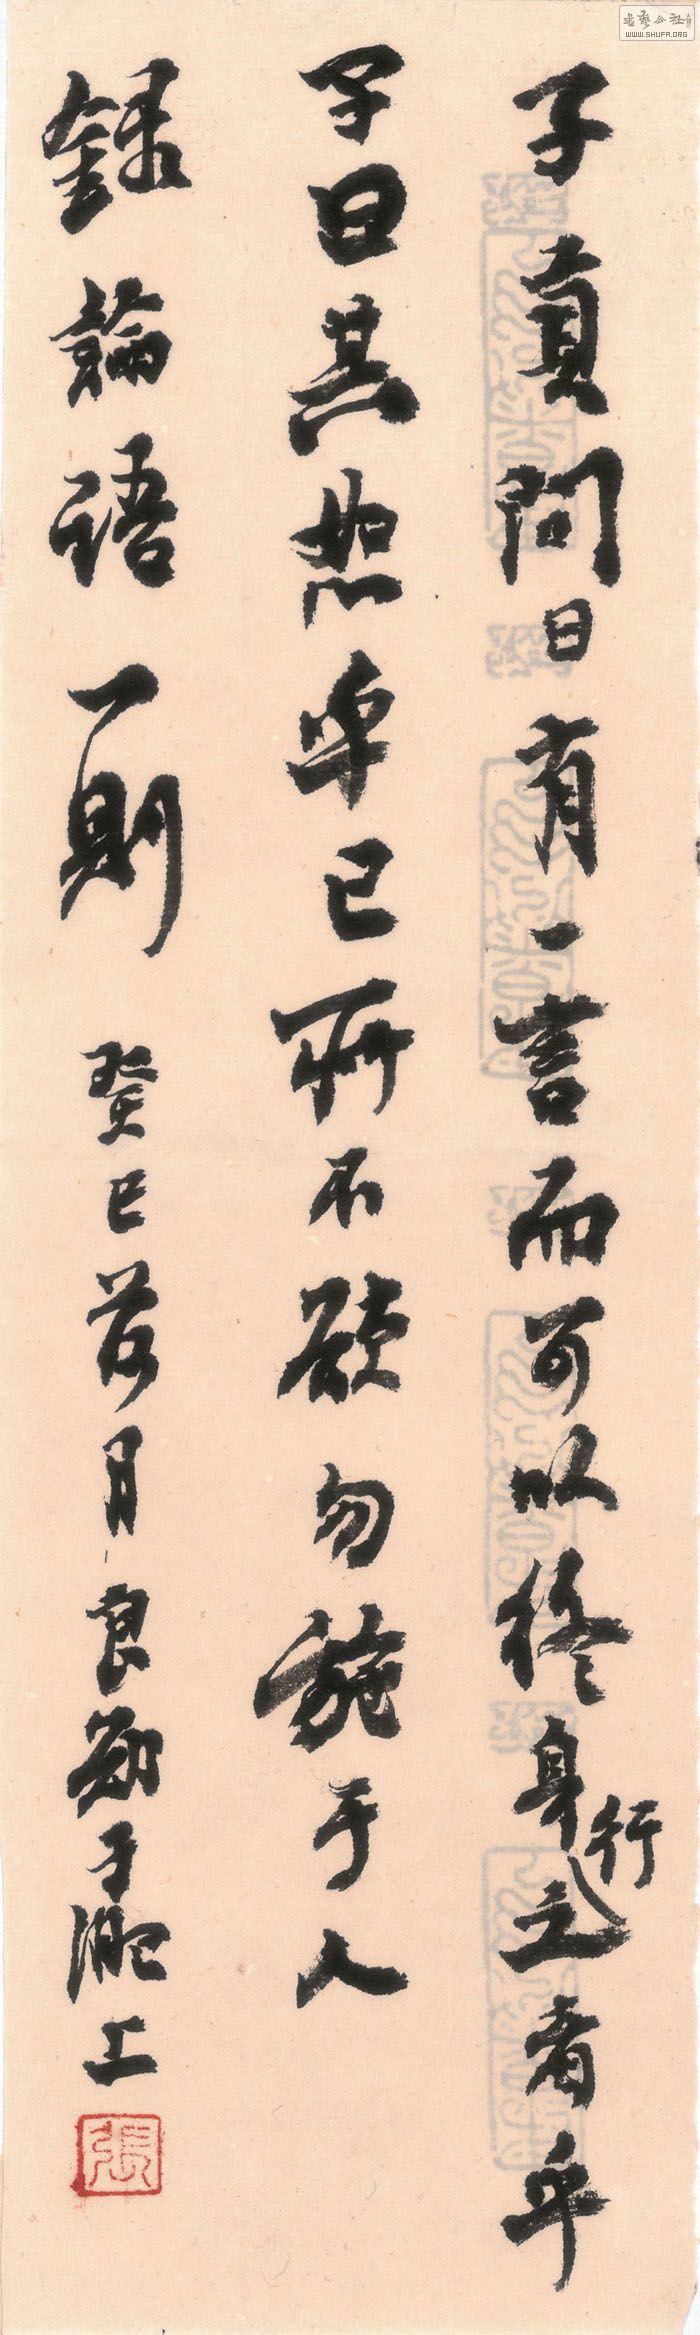 子貢問曰有一言而可以終身行之者乎
子曰其恕乎己所不欲勿施于人
錄論語一則 癸巳荷月良于淝上
張
書藝公社
WWW.SHUFA.ORG